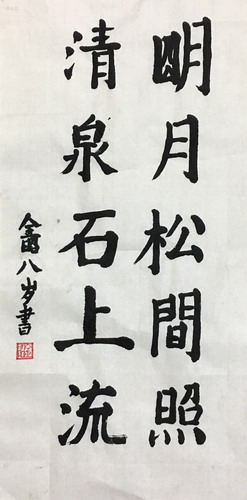 明月松間照
清泉石上流
八岁書